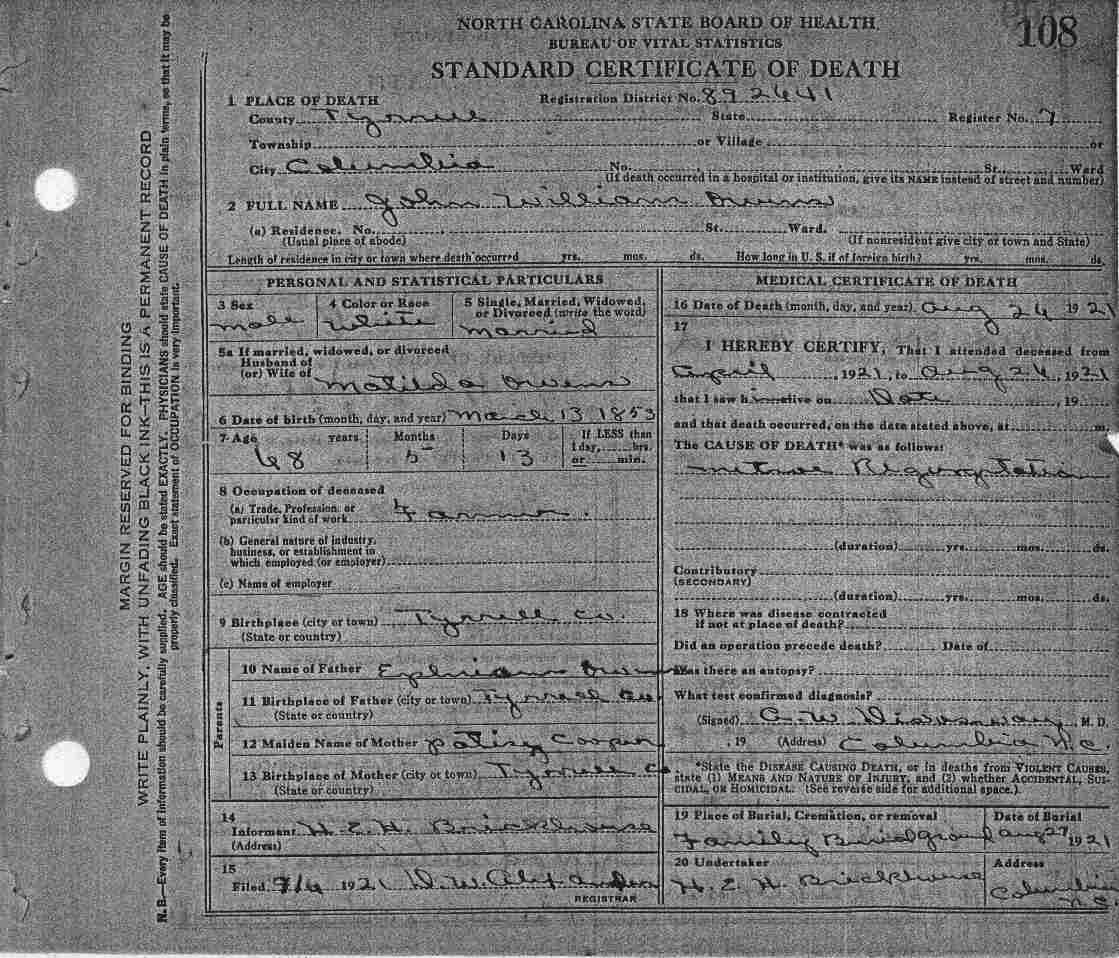 108
NORTH CAROLINA STATE BOARD OF HEALTH
BUREAU OF VITAL STATISTICS
STANDARD CERTIFICATE OF DEATH
1 PLACE OF DEATH Registration District No. 892641
County Tyrrell State Register No. 7
Township or Village or
City Columbia No. St., Ward
(If death occurred in a hospital or institution, give its NAME instead of street and number)
2 FULL NAME John William Owens
(a) Residence. No. St. Ward.
(Usual place of abode) (If nonresident give city or town and State)
Length of residence in city or town where death occurred yrs. mos. ds. How long in U. S. if of foreign birth? yrs. mos. ds.
PERSONAL AND STATISTICAL PARTICULARS
3 Sex 4 Color or Race 5 Single, Married, Widowed,
or Divorced (write the word)
Male White Married
5a If married, widowed, or divorced
Husband of
(or) Wife of Matilda Owens
6 Date of birth (month, day, and year) March 13 1853
7 Age years Months Days If LESS than
1 day, hrs.
or min.
68 5 13
8 Occupation of deceased
(a) Trade, Profession, or
particular kind of work Farmer.
(b) General nature of industry,
business, or establishment in
which employed (or employer)
(c) Name of employer
9 Birthplace (city or town) Tyrrell Co.
(State or country)
Parents
10 Name of Father Ephriam Owens
11 Birthplace of Father (city or town) Tyrrell Co.
(State or country)
12 Maiden Name of Mother Patisy Cooper
13 Birthplace of Mother (city or town) Tyrrell Co
(State or country)
14
Informant H. E. H. Brickhouse
(Address)
15
Filed 9/6 1921 D. W. Alexander
REGISTRAR
MEDICAL CERTIFICATE OF DEATH
16 Date of Death (month, day, and year) Aug 26 1921
17
I HEREBY CERTIFY, That I attended deceased from
April , 1921, to Aug 26, 1921
that I saw him alive on Date , 19
and that death occurred, on the date stated above, at m.
The CAUSE OF DEATH* was as follows:
Mitral Regurgitation
(duration) yrs. mos. ds.
Contributory
(SECONDARY)
(duration) yrs. mos. ds.
18 Where was disease contracted
if not at place of death?
Did an operation precede death? Date of
Was there an autopsy?
What test confirmed diagnosis?
(Signed) C. W. M. D.
, 19 (Address) Columbia N.C.
*State the DISEASE CAUSING DEATH, or in deaths from VIOLENT CAUSES,
state (1) MEANS AND NATURE OF INJURY, and (2) whether ACCIDENTAL, SUI-
CIDAL, OR HOMICIDAL. (See reverse side for additional space.)
19 Place of Burial, Cremation, or removal Date of Burial
Family Burial ground Aug 27 1921
20 Undertaker Address
H. E. H. Brickhouse Columbia
N C
MARGIN RESERVED FOR BINDING
WRITE PLAINLY, WITH UNFADING BLACK INK—THIS IS A PERMANENT RECORD
N. B.—Every item of information should be carefully supplied. AGE should be stated EXACTLY. PHYSICIANS should state CAUSE OF DEATH in plain terms, so that it may be
properly classified. Exact statement of OCCUPATION is very important.